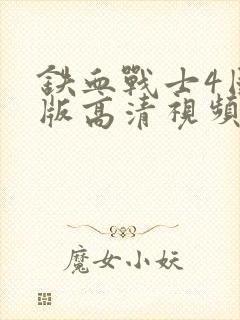 鉄血戰士4
版高清視頻
魔女小妖